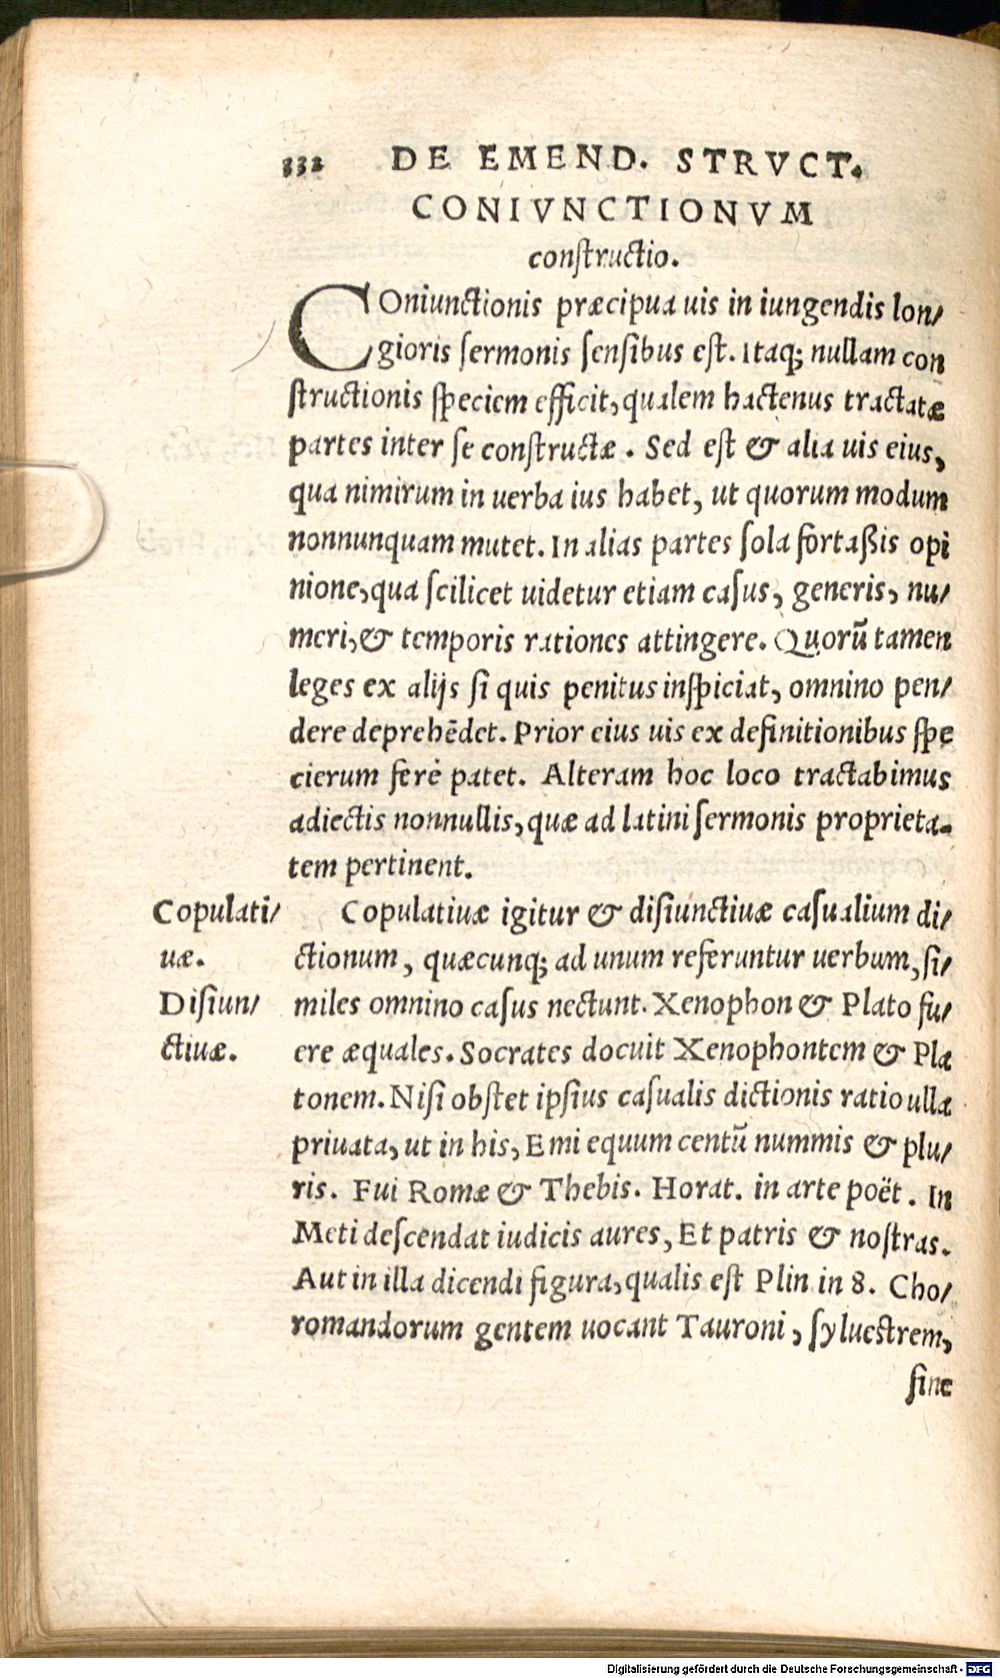 332 DE EMEND. STRVCT.
CONIVNCTIONVM
constructio.
COniunctionis præcipua uis in iungendis lon/
gioris sermonis sensibus est. Itaq; nullam con
structionis speciem efficit, qualem hactenus tractatæ
partes inter se constructæ. Sed est & alia uis eius,
qua nimirum in uerba ius habet, ut quorum modum
nonnunquam mutet. In alias partes sola fortaßis opi
nione, qua scilicet uidetur etiam casus, generis, nu/
meri, & temporis rationes attingere. Quorū tamen
leges ex alijs si quis penitus inspiciat, omnino pen/
dere deprehēdet. Prior eius uis ex definitionibus spe
cierum ferè patet. Alteram hoc loco tractabimus
adiectis nonnullis, quæ ad latini sermonis proprieta-
tem pertinent.
Copulati/
uæ.
Disiun/
ctiuæ.
Copulatiuæ igitur & disiunctiuæ casualium di/
ctionum, quæcunq; ad unum referuntur uerbum, si/
miles omnino casus nectunt. Xenophon & Plato fu/
ere æquales. Socrates docuit Xenophontem & Pla
tonem. Nisi obstet ipsius casualis dictionis ratio ulla
priuata, ut in his, Emi equum centū nummis & plu/
ris. Fui Romæ & Thebis. Horat. in arte poët. In
Meti descendat iudicis aures, Et patris & nostras.
Aut in illa dicendi figura, qualis est Plin in 8. Cho/
romandorum gentem uocant Tauroni, syluestrem,
sine
Digitalisierung gefördert durch die Deutsche Forschungsgemeinschaft - DFG